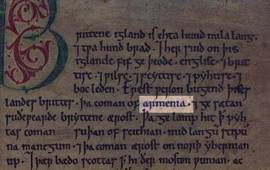 Brittene igland is ehta hund mila lang.
⁊ tƿa hund brad. ⁊ her sind on þis
iglande fif geþeode. englisc. ⁊ brit
tisc. ⁊ ƿilsc. ⁊ scyttisc. ⁊ pyhtisc. ⁊
boc leden. Erest ƿeron bugend þises
landes brittes. þa coman of armenia. ⁊ gesætan
suðeƿearde bryttene ærost. Þa gelamp hit þ pyh
tas coman suþan of scithian. mid langū scipū
na manegum. ⁊ þa coman ærost on norþ ybernian
up. ⁊ þær bædo scottas þ hi ðer moston ƿunian. ac